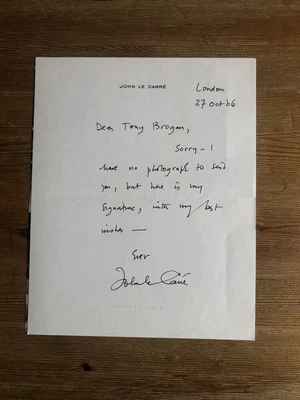 JOHN LE CARRÉ
London
27 Oct 06
Dear Tony Brogan,
Sorry – I
have no photograph to send
you, but here is my
signature, with my best
wishes —
Ever
John le Carré